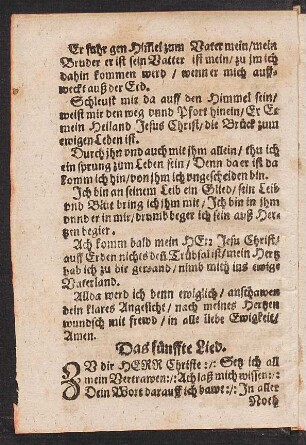 Er fuhr gen Himel zum Vater mein / mein
Bruder er ist sein Vatter ist mein / zu jm ich
dahin kommen werd / wenn er mich auff-
weckt auß der Erd.
Schleust mir da auff den Himmel sein /
weist mir den weg vnnd Pfort hinein / Er Es
mein Heiland Jesus Christ / die Brück zum
ewigen Leben ist.
Durch jhn vnd auch mit jhm allein / thu ich
ein sprung zum Leben sein / Denn da er ist da
komm ich hin / von jhm ich vngescheiden bin.
Ich bin an seinem Leib ein Glied / sein Leib
vnd Blut bring ich jhm mit / Ich bin in jhm
vnnd er in mir / drumb beger ich sein auß Her-
tzen begier.
Ach komm bald mein HE:: Jesu Christ /
auff Erden nichts deñ Trübsal ist / mein Hertz
hab ich zu dir gesand / nimb mich ins ewige
Vaterland.
Allda werd ich denn ewiglich / anschawen
dein klares Angesicht / nach meines Hertzen
wundsch mit frewd / in alle liebe Ewigkeit /
Amen.
Das fünffte Lied.
ZV dir HERR Christe :/: Setz ich all
mein Vertrawen :/: Ach laß mich wissen :/:
Dein Wort darauff ich bawt :/: In aller
Noth